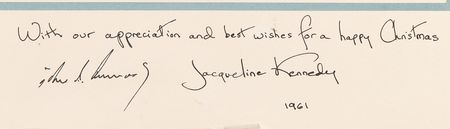 With our appreciation and best wishes for a happy Christmas
Jacqueline Kennedy
1961